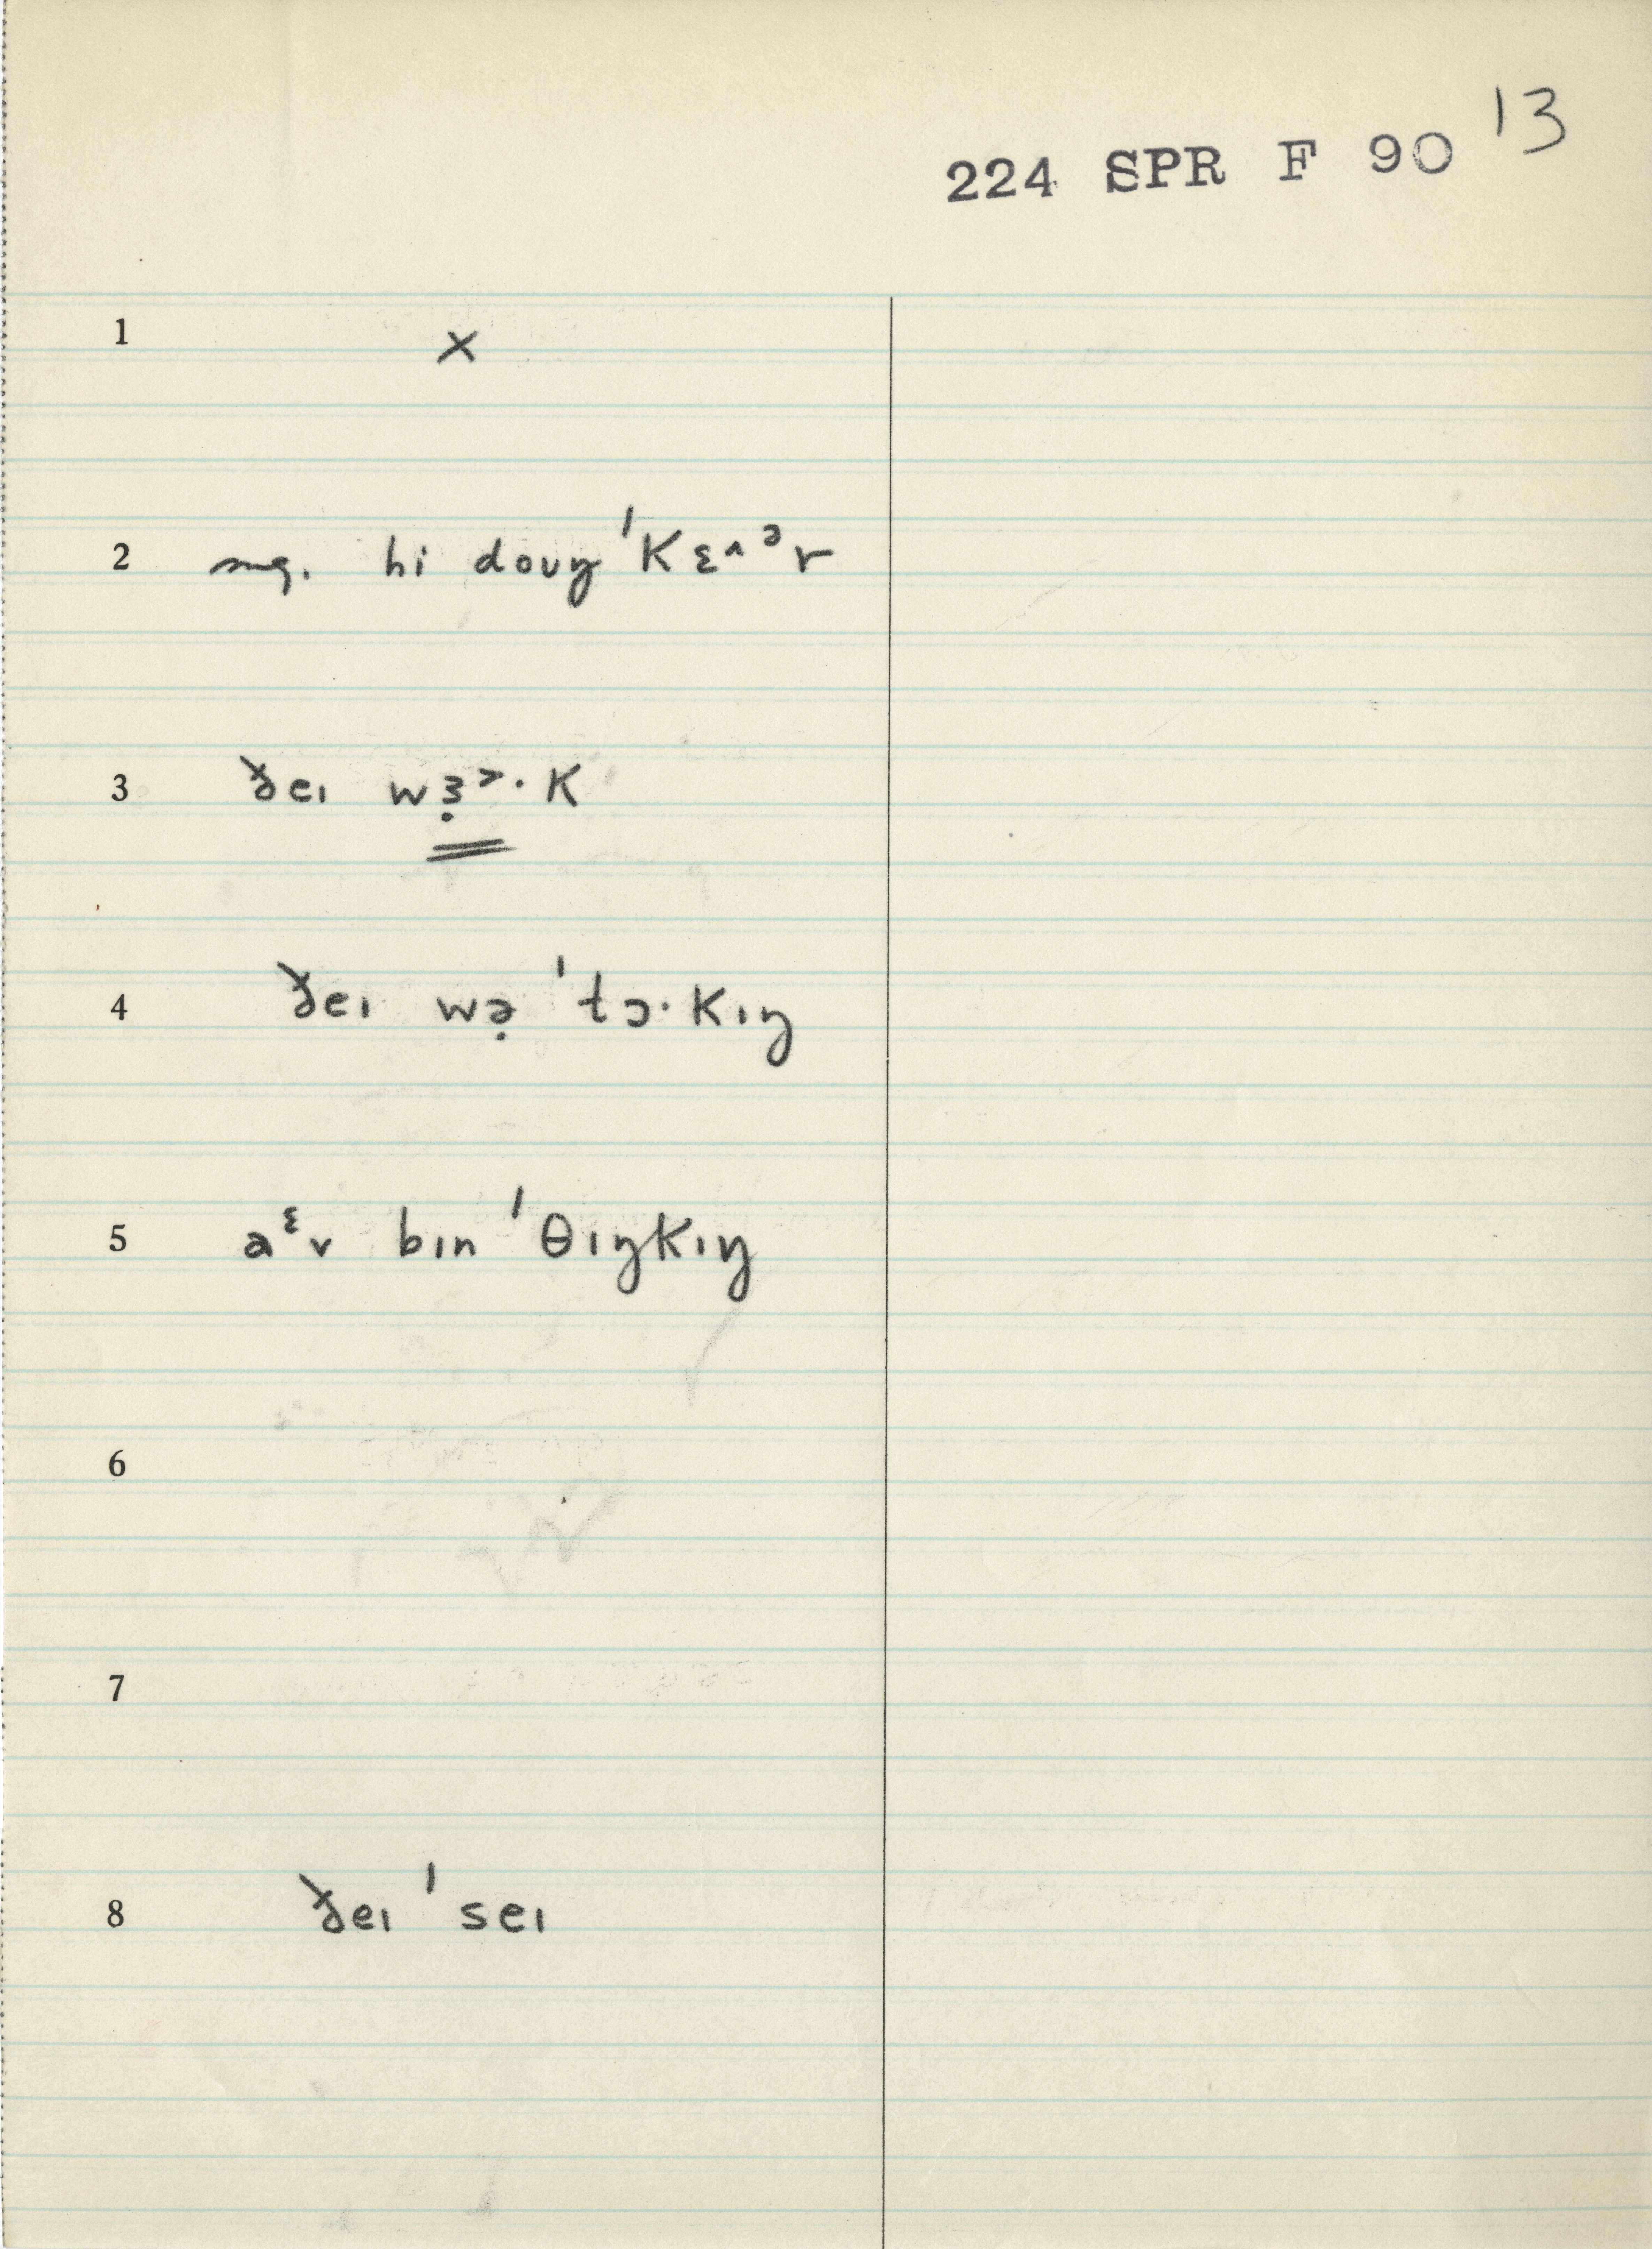 224 SPR F 90 13
1 x
2 sug. hi douŋ ˈKɛ^ᵊr
3 ðeɪ wɜ̣˃·K
4 ðeɪ wə̣ ˈtɔ·Kɪŋ
5 aᵋv bɪn ˈθɪŋKɪŋ
6
7
8 ðeɪ ˈseɪ